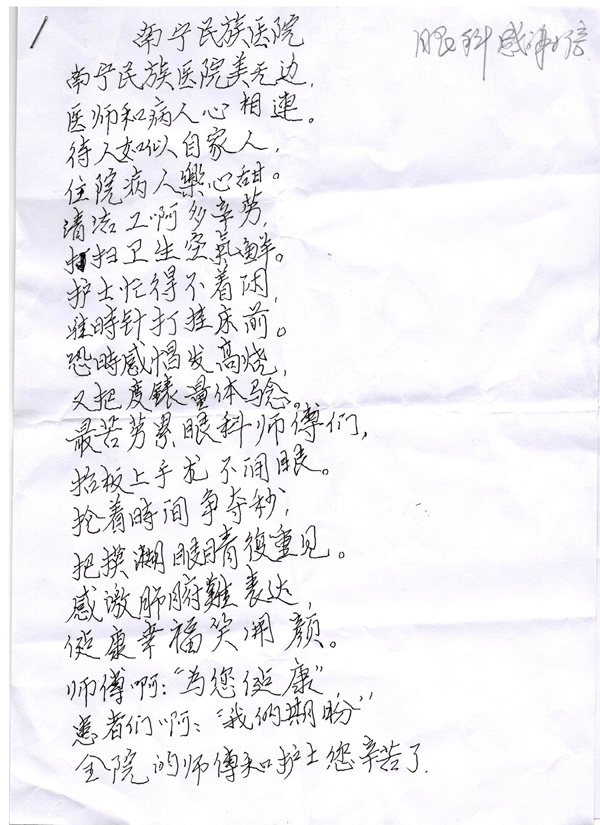 眼科感谢信
南宁民族医院
南宁民族医院美无边,
医师和病人心相連。
待人如似自家人,
住院病人樂心甜。
清洁工啊多辛劳,
打扫卫生空氣鲜。
护士忙得不着闲,
時针打挂床前。
恐時感惕发高烧,
又把度錶量体验。
最苦劳累眼科师傅们,
抬板上手尤不闭眼。
抢着時间争夺秒,
把模湖眼睛復重见。
感激肺腑難表达,
健康幸福笑開颜。
师傅啊:“为您健康”
患者们啊:“我们期盼”
全院的师傅和护士您辛苦了.